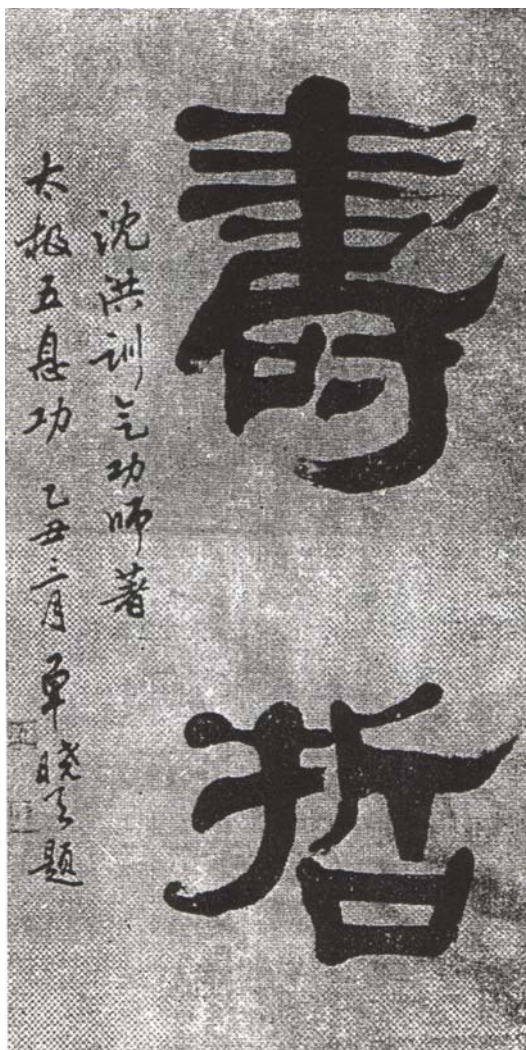 壽哲
沈洪训气功师著
太极五息功 乙丑三月 单晓天题